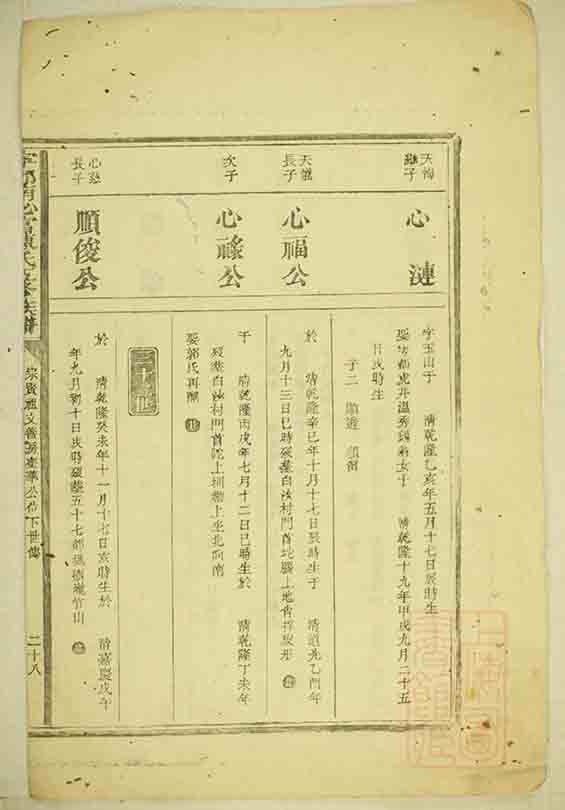 天梅
繼子
心漣
字玉山于 清乾隆乙亥年五月十七日辰時生
娶 女于 清乾隆十九年甲戌九月二十五
日戌時生
子二
天
長子
心福公
於 清乾隆辛巳年十月十七日辰時生于 清道光乙酉年
九月十三日巳時歿葬白沙村門首坨 上地 形
次子
心祿公
于 清乾隆丙戌年七月十二日巳時生於 清乾隆丁未年
歿葬白沙村門首陀上圳 上坐北向南
娶郭氏再醮
三十世
心慈
長子
順俊公
於 清乾隆癸未年十一月十七日亥時生於 清嘉慶戌午
年九月初十日戌時歿葬五十七都 竹山
氏 族譜
宗貴祖文 房 華公位下世傳
二十八
上海圖
書館藏